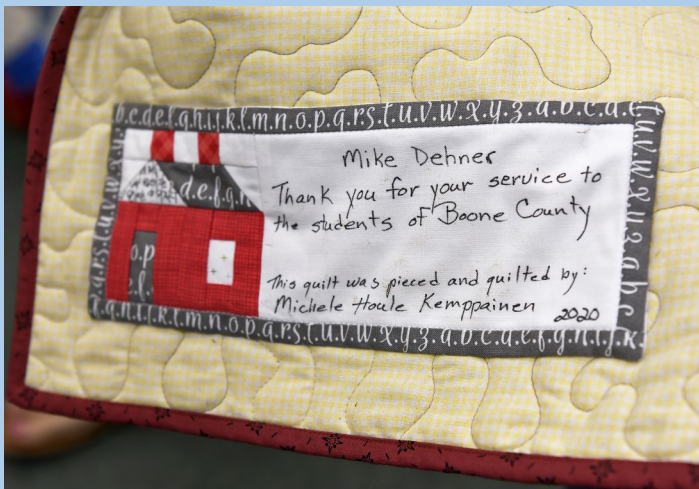 b.c.d.e.f.g.h.i.j.k.l.m.n.o.p.q.r.s.t.u.v.w.x.y.z.a.b.c.d.e
Mike Dehner
Thank you for your service to
the students of Boone County
This quilt was pieced and quilted by:
Michele Houle Kemppainen 2020
d.e.f.g.h
o.p
e.f.
t.u.v.w.x.y.z.a.b.c
q.r.s.t.u.v.w.x.y
f.g.h.i.j.k.l.m.n.o.p.q.r.s.t.u.v.w.x.y.z.a.b.c.d.e.f.g.h.i.j.k